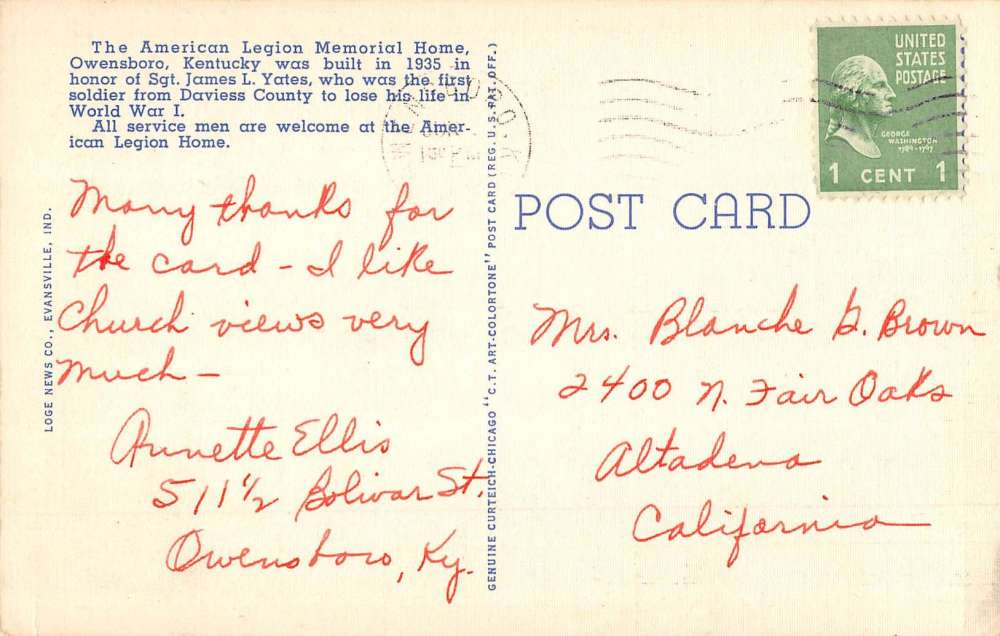 The American Legion Memorial Home,
Owensboro, Kentucky was built in 1935 in
honor of Sgt. James L. Yates, who was the first
soldier from Daviess County to lose his life in
World War I.
All service men are welcome at the Amer-
ican Legion Home.
Many thanks for
the card - I like
Church views very
much -
Annette Ellis
511 1/2 Bolivar St.
Owensboro, Ky.
LOGE NEWS CO., EVANSVILLE, IND.
GENUINE CURTEICH-CHICAGO "C.T. ART-COLORTONE" POST CARD (REG. U.S. PAT. OFF.)
UNITED
STATES
POSTAGE
GEORGE
WASHINGTON
1789-1797
1 CENT 1
POST CARD
Mrs. Blanche G. Brown
2400 N. Fair Oaks
Altadena
California